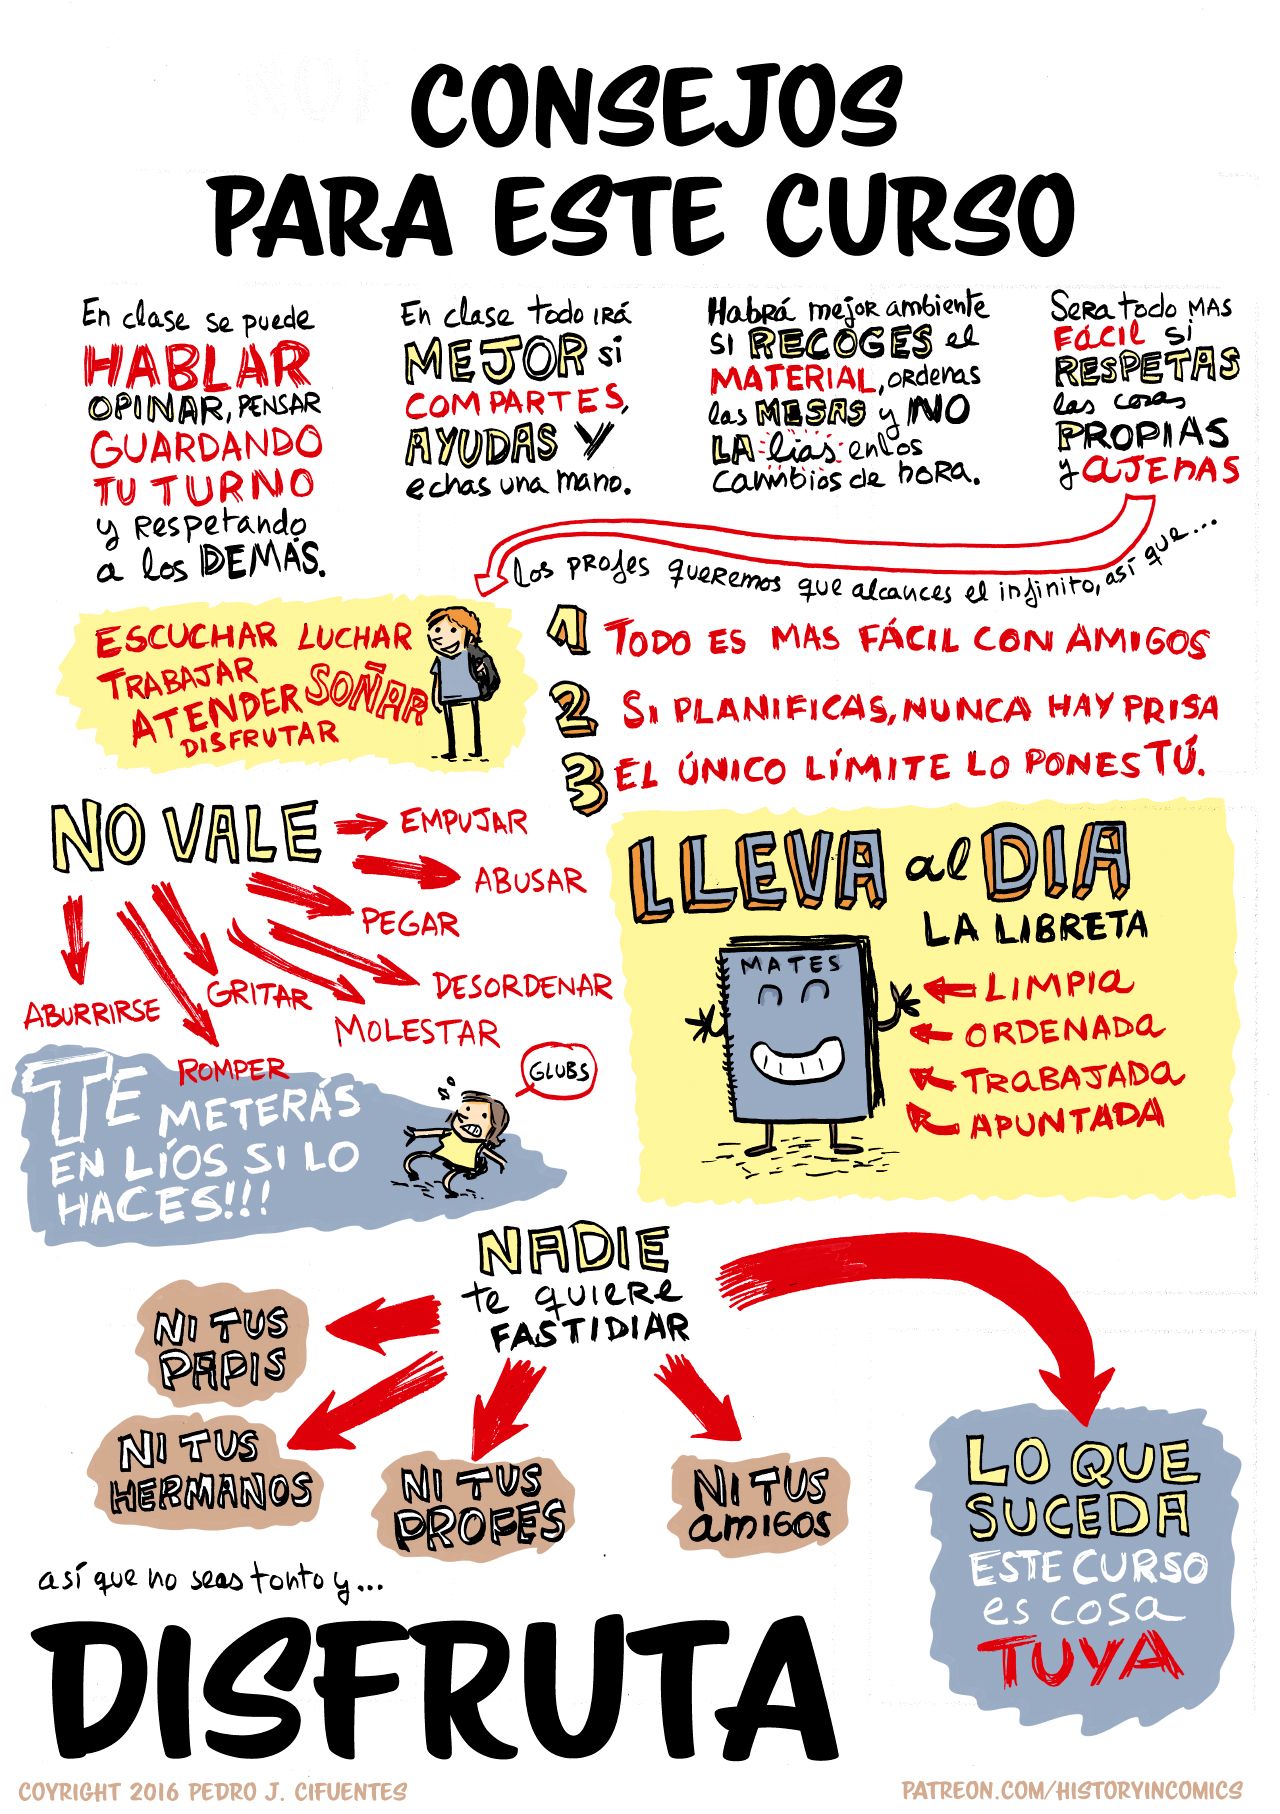 CONSEJOS
PARA ESTE CURSO
En clase se puede
HABLAR
OPINAR, PENSAR
GUARDANDO
TU TURNO
y respetando
a los DEMÁS.
En clase todo irá
MEJOR si
COMPARTES,
AYUDAS Y
echas una mano.
Habrá mejor ambiente
SI RECOGES el
MATERIAL, ordenas
las MESAS y NO
LA lías en los
cambios de hora.
Sera todo MAS
FÁCIL si
RESPETAS
las cosas
PROPIAS
y AJENAS
los profes queremos que alcances el infinito, así que...
ESCUCHAR LUCHAR
TRABAJAR
ATENDER SOÑAR
DISFRUTAR
1 TODO ES MAS FÁCIL CON AMIGOS
2 SI PLANIFICAS, NUNCA HAY PRISA
3 EL ÚNICO LÍMITE LO PONES TÚ.
NO VALE
EMPUJAR
ABUSAR
PEGAR
DESORDENAR
MOLESTAR
GRITAR
ABURRIRSE
ROMPER
TE METERÁS
EN LÍOS SI LO
HACES!!!
GLUBS
LLEVA al DIA
LA LIBRETA
MATES
LIMPIA
ORDENADA
TRABAJADA
APUNTADA
NADIE
te quiere
FASTIDIAR
NI TUS
PAPIS
NI TUS
HERMANOS
NI TUS
PROFES
NI TUS
amigos
LO QUE
SUCEDA
ESTE CURSO
es cosa
TUYA
así que no seas tonto y...
DISFRUTA
COYRIGHT 2016 PEDRO J. CIFUENTES
PATREON.COM/HISTORYINCOMICS